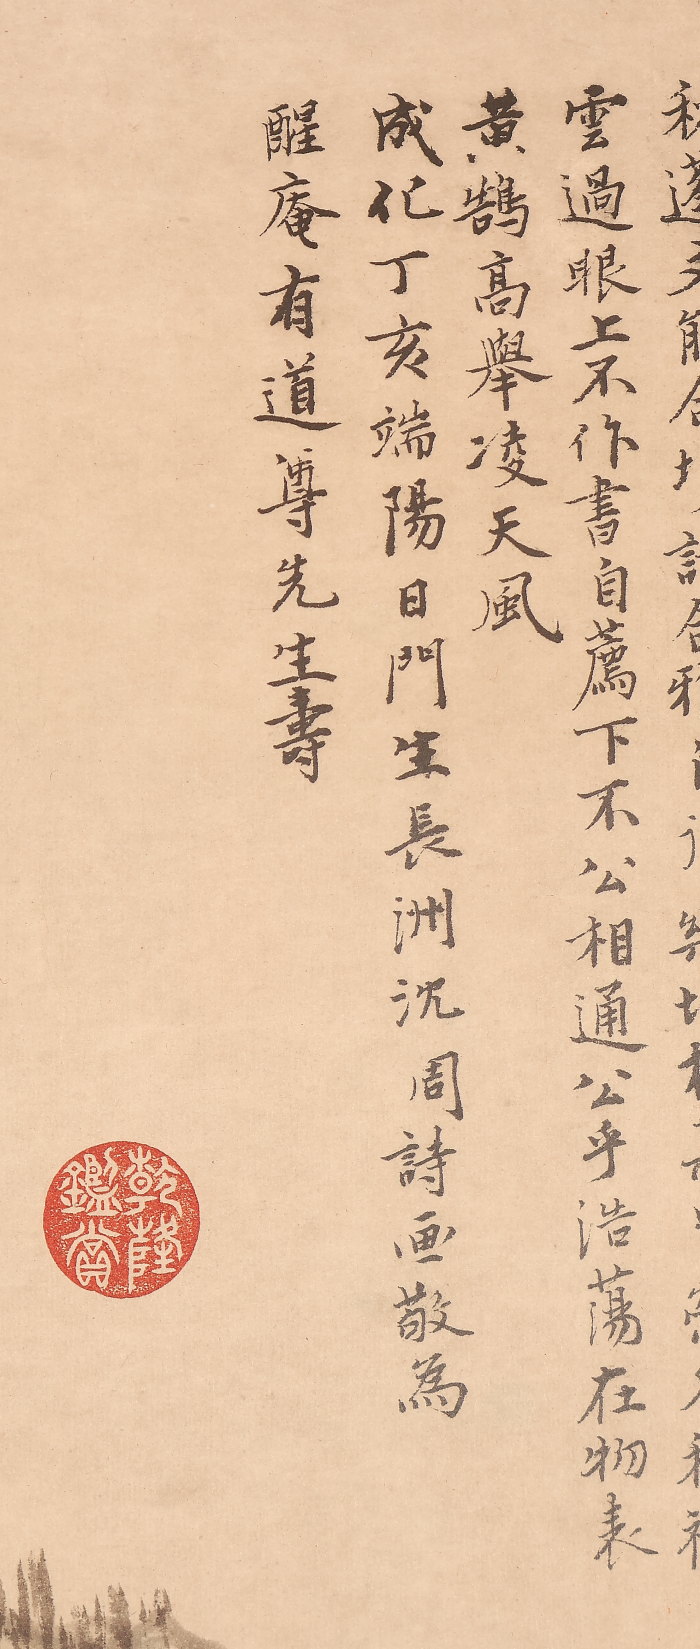 文能合詩合雅
雲過眼上不作書自薦下不公相通公乎浩蕩在物表
黃鵠高舉凌天風
成化丁亥端陽日門生長洲沈周詩画敬為
醒庵有道尊先生壽
乾隆
鑑賞